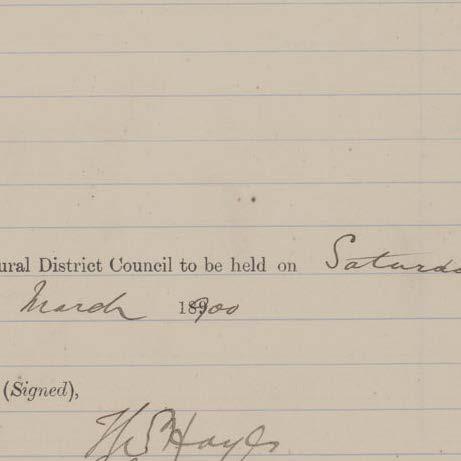 ural District Council to be held on Saturda
March 1900
(Signed),
Thos Hayes